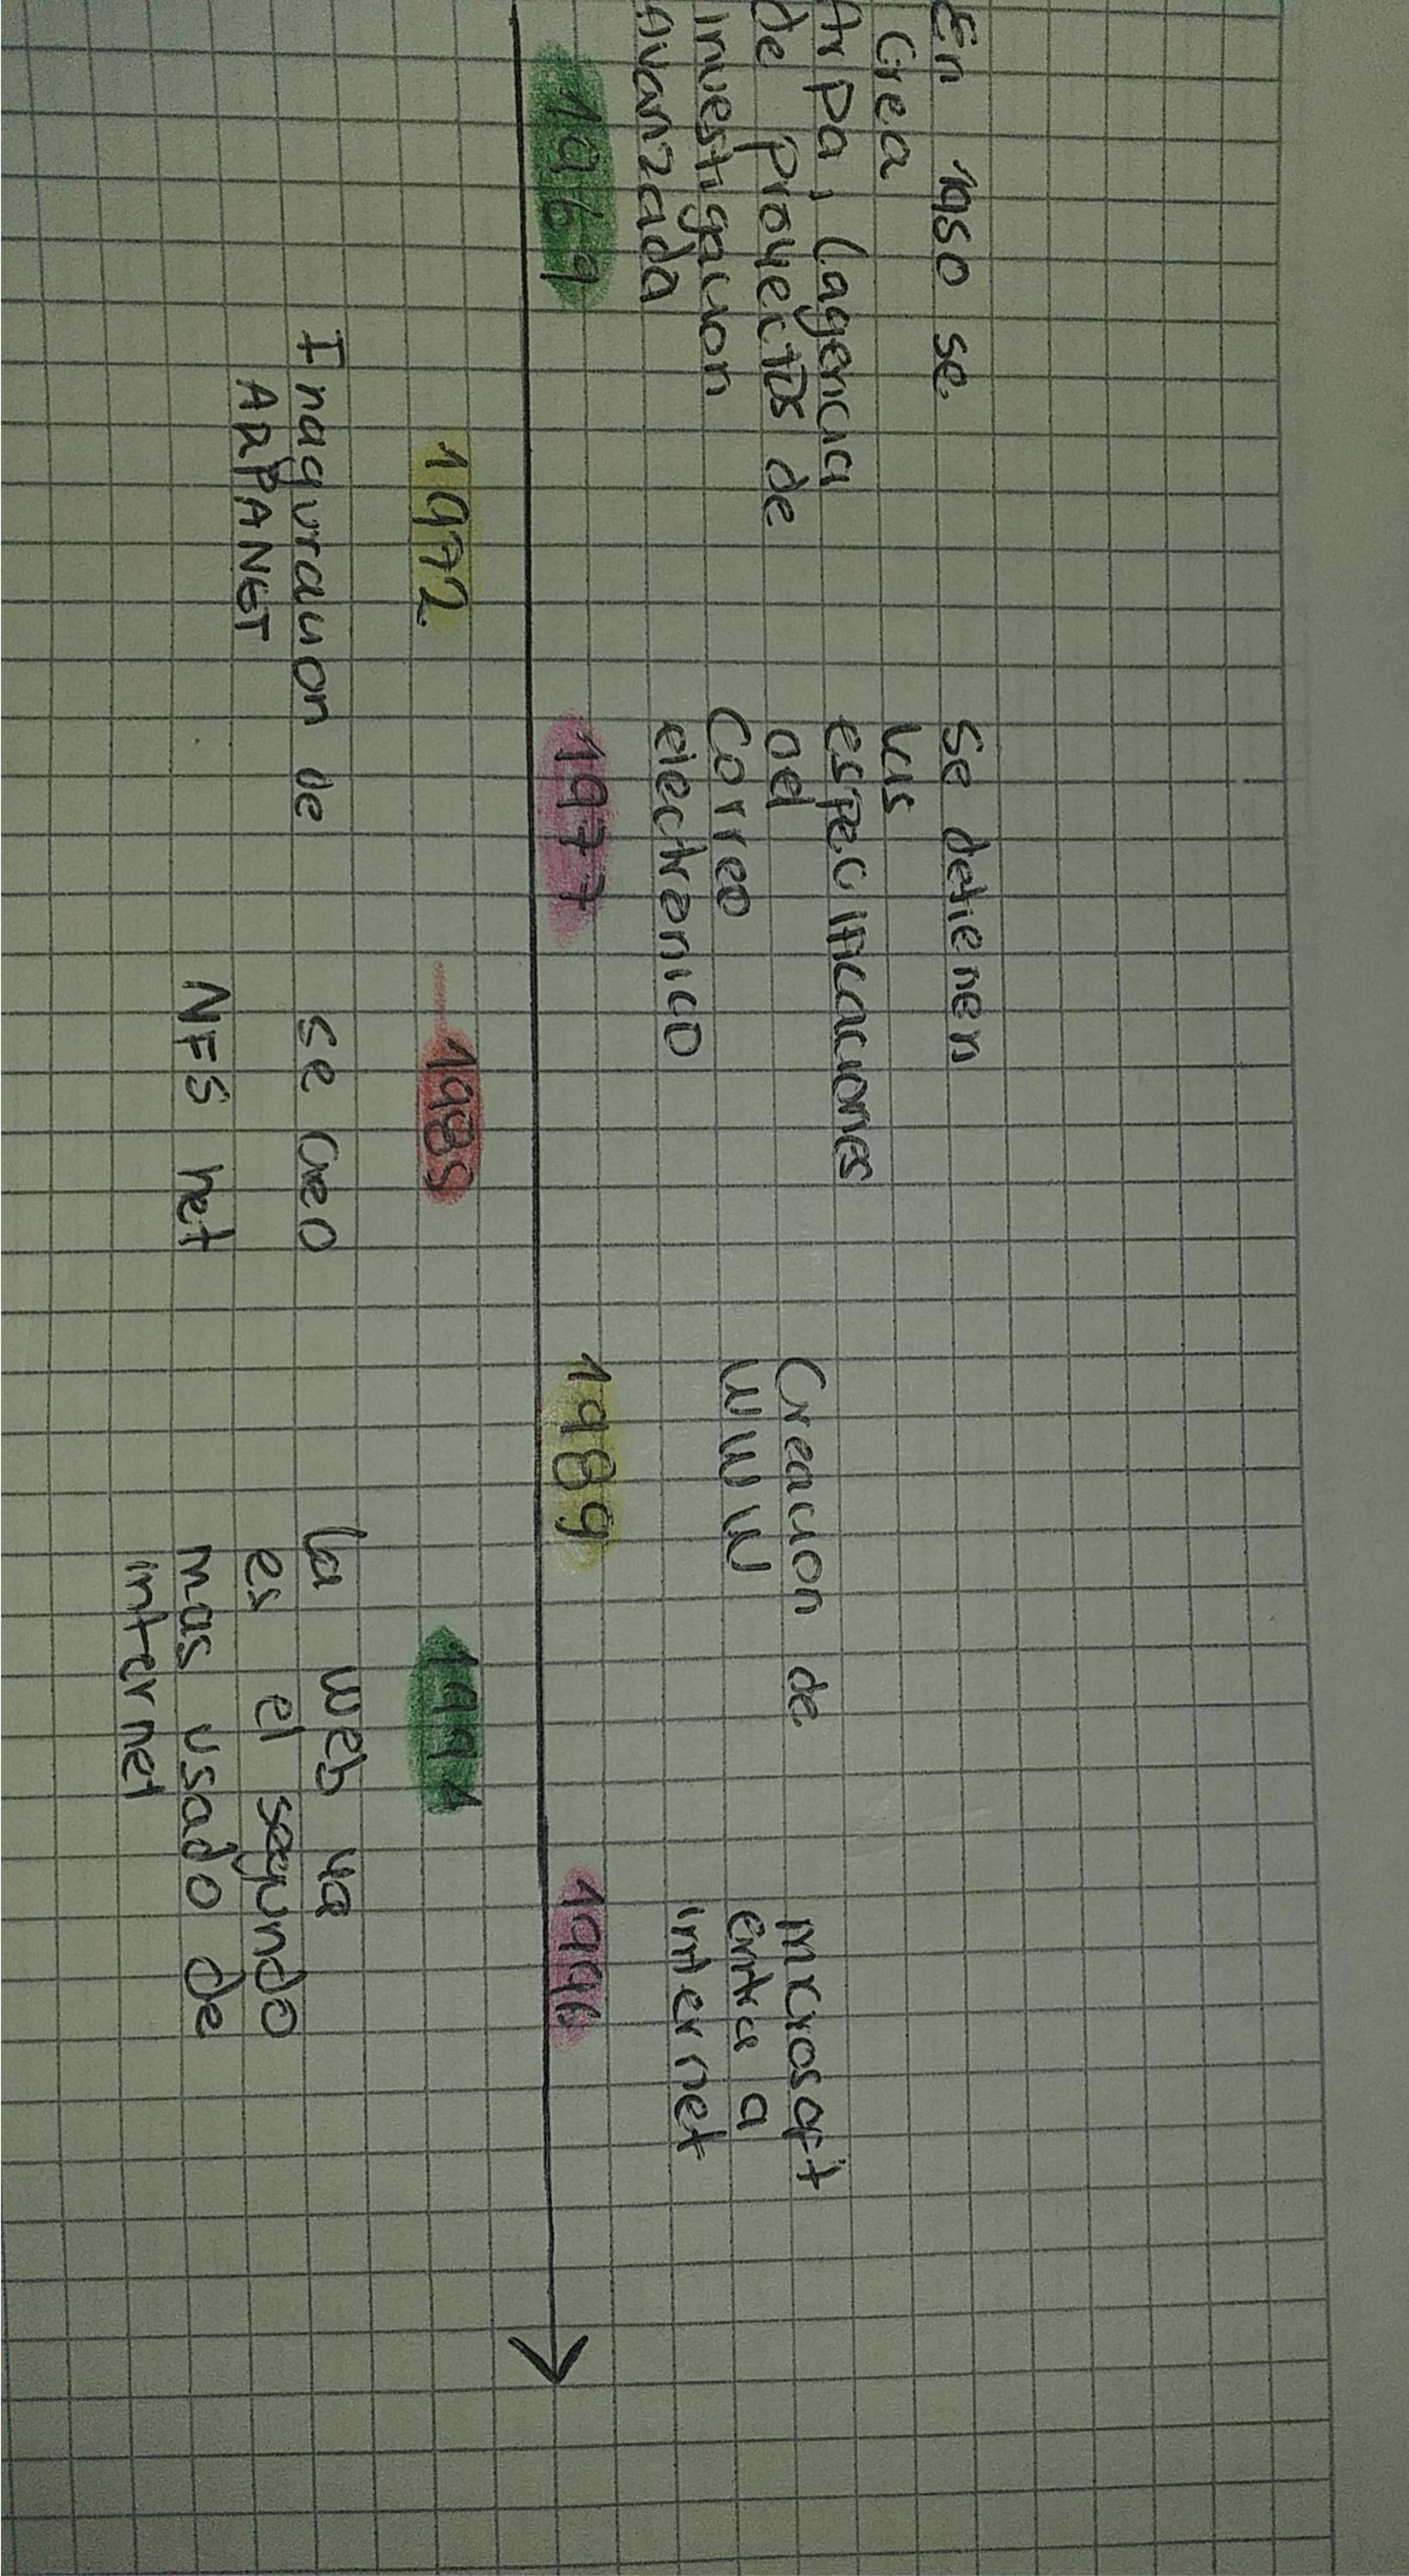 En 1950 se
Crea
Arpa, (agencia
de Proyectos de
Investigacion
Avanzada
1969
1972
Inaguracion de
ARPANET
Se detienen
las
especificaciones
del
Correo
electronico
1977
1985
se creo
NFS net
Creacion de
WWW
1989
1994
la web ya
es el segundo
mas usado de
internet
microsoft
entra a
internet
1996